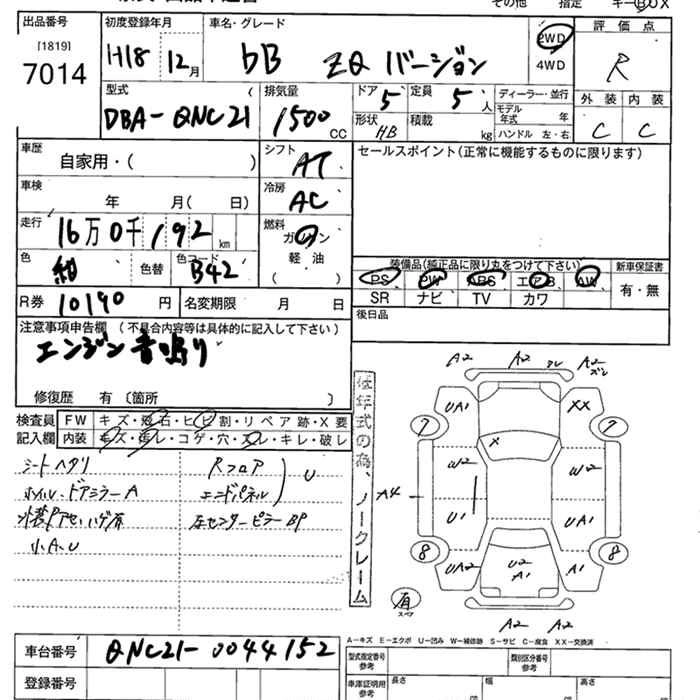 出品番号 [1819] 7014
初度登録年月 H18 12月
車名・グレード bB ZQ バージョン
2WD
4WD
評価点 R
外装 内装
C C
型式 DBA-QNC21
排気量 1500 CC
ドア 5 定員 5人
形状 HB 積載 kg
ディーラー・並行
モデル年式 年
ハンドル 左・右
車歴 自家用・( )
シフト AT
車検 年 月( 日)
冷房 AC
走行 16万0千192 km
燃料 ガソリン
軽油
( )
色 紺 色替 色コード B42
R券 10190 円 名変期限 月 日
セールスポイント(正常に機能するものに限ります)
装備品(純正品に限り丸をつけて下さい)
新車保証書
PS PW ABS エアB AW
SR ナビ TV カワ
有・無
後日品
注意事項申告欄 (不具合内容等は具体的に記入して下さい)
エンジン音鳴り
修復歴 有〔箇所 〕
検査員記入欄
FW キズ・飛石・ヒビ割・リペア跡・X要
内装 キズ・汚レ・コゲ・穴・スレ・キレ・破レ
シートヘタリ
Rフロア
エンドパネル
U
ホイル・ドアミラーA
左センターピラーBP
小A、U
低年式の為、ノークレーム
A2 A2 A2
UA1 XX
7 7
X
W2 W2
A4
U1 UA1
8 8
UA2 A2 U2 A1 A2 A1
有
スペア
A2 A2
A-キズ E-エクボ U-凹み W-補修跡 S-サビ C-腐食 XX-交換済
車台番号 QNC21-0044152
登録番号
型式指定番号 参考
類別区分番号 参考
車庫証明用 参考
長さ 幅 高さ